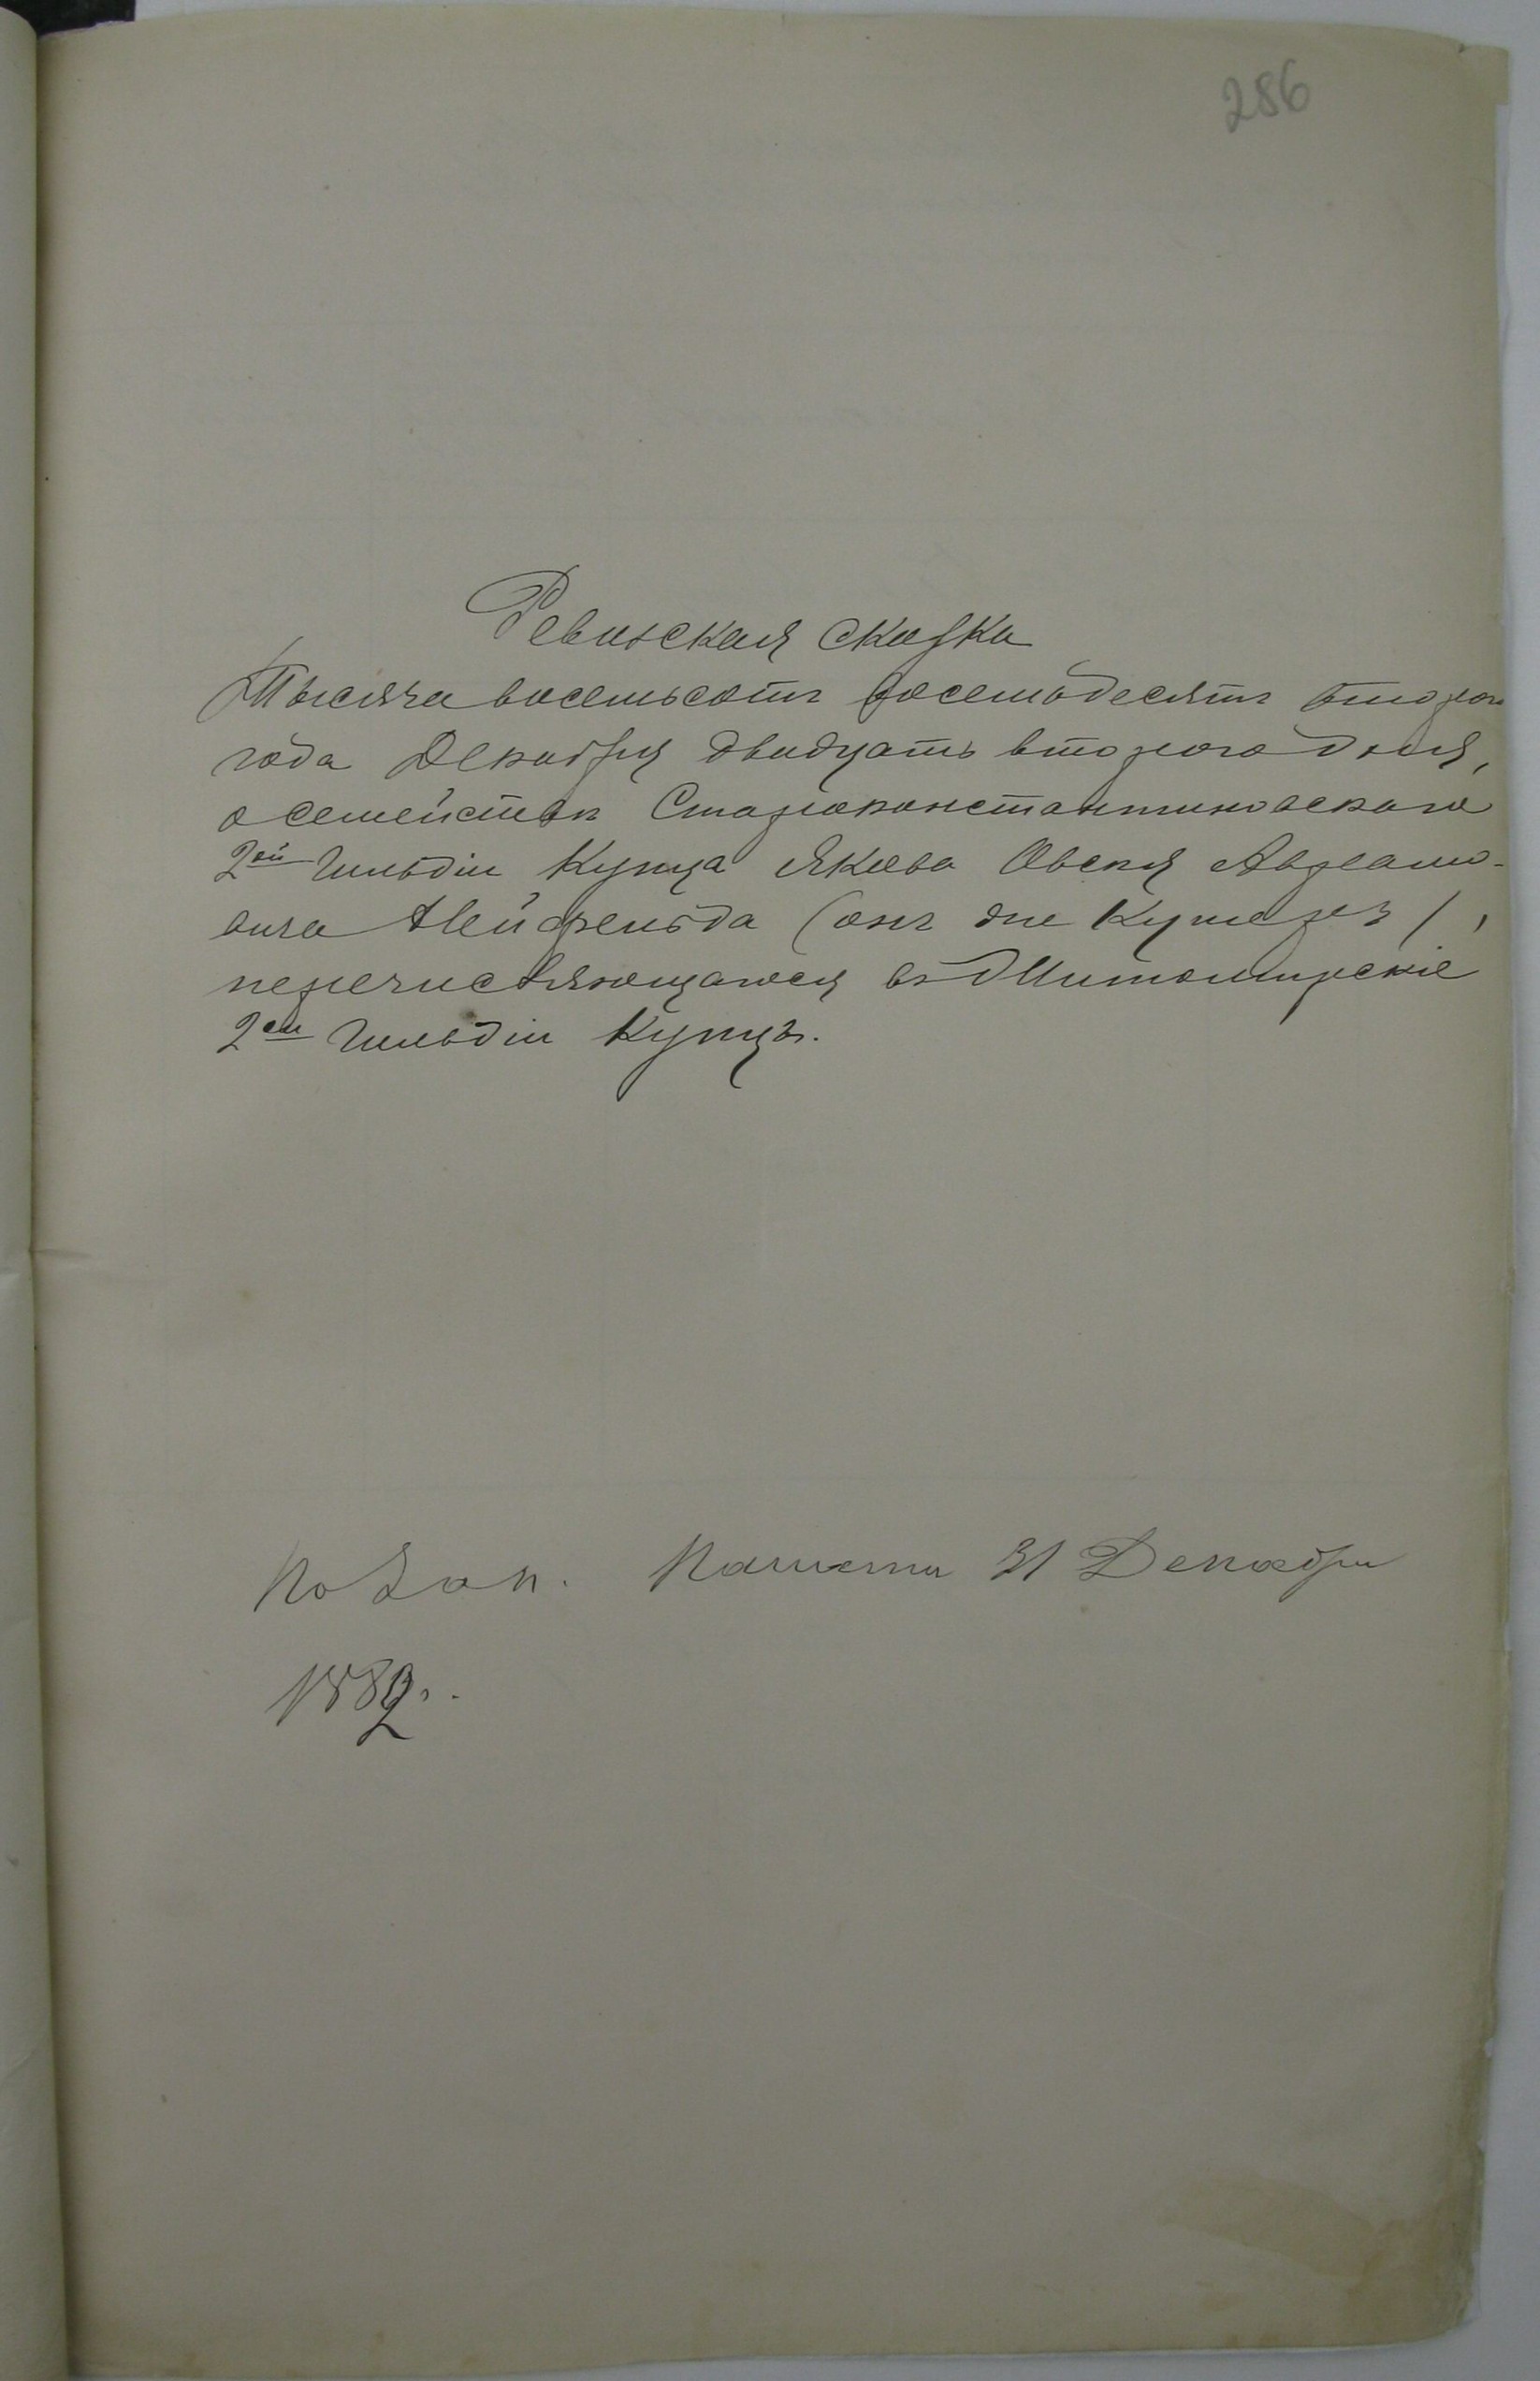 286
Ревизская сказка
Тысяча восемьсотъ восемьдесятъ второго
года Декабря двадцать второго дня,
о семействѣ Староконстантиновскаго
2ой Гильдіи Купца Якова Овсея Авраамо-
вича Нейфельда (онъ же Куперъ),
перечисляющагося въ Житомирскіе
2ой Гильдіи Купцы.
31 Декабря
1882.